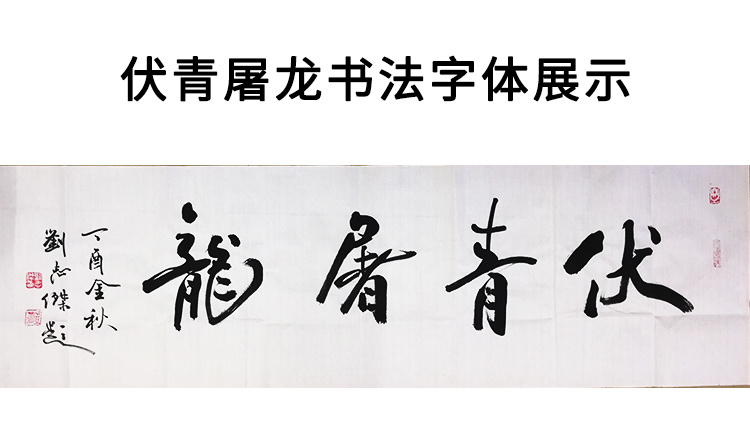 伏青屠龙书法字体展示
伏青屠龍
丁酉金秋
劉志傑題